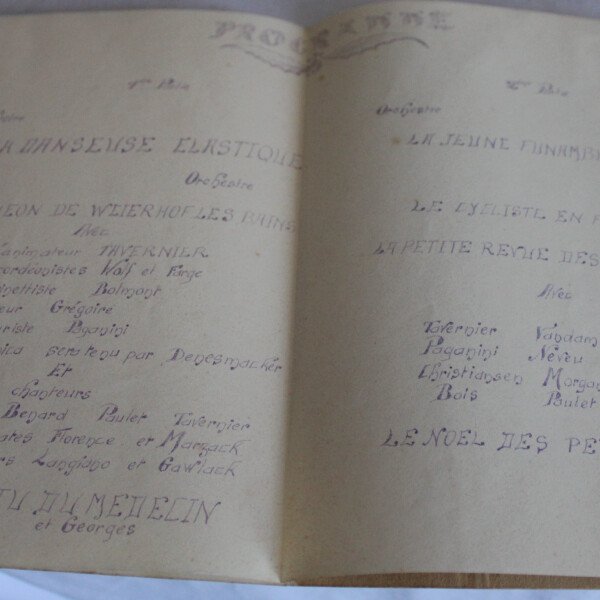 PROGRAMME
1ère Ptie
A DANSEUSE ELASTIQUE
Orchestre
DE WEIERHOF LES BAINS
Avec
L'animateur TAVERNIER
cordéonistes Wolf et Farge
Bolmont
eur Grégoire
riste Paganini
ica sera tenu par Denesmacker
Et
chanteurs
Benard Paulet Tavernier
ates Florence et Marzack
rs Langiano et Gawlack
TU DU MEDECIN
et Georges
2me Ptie
Orchestre
LA JEUNE FUNAMB
LE CYCLISTE EN
LA PETITE REVUE DES
Avec
Tavernier Vanaam
Paganini Neveu
Christiansen Morgan
Bois Paulet
LE NOEL DES PE